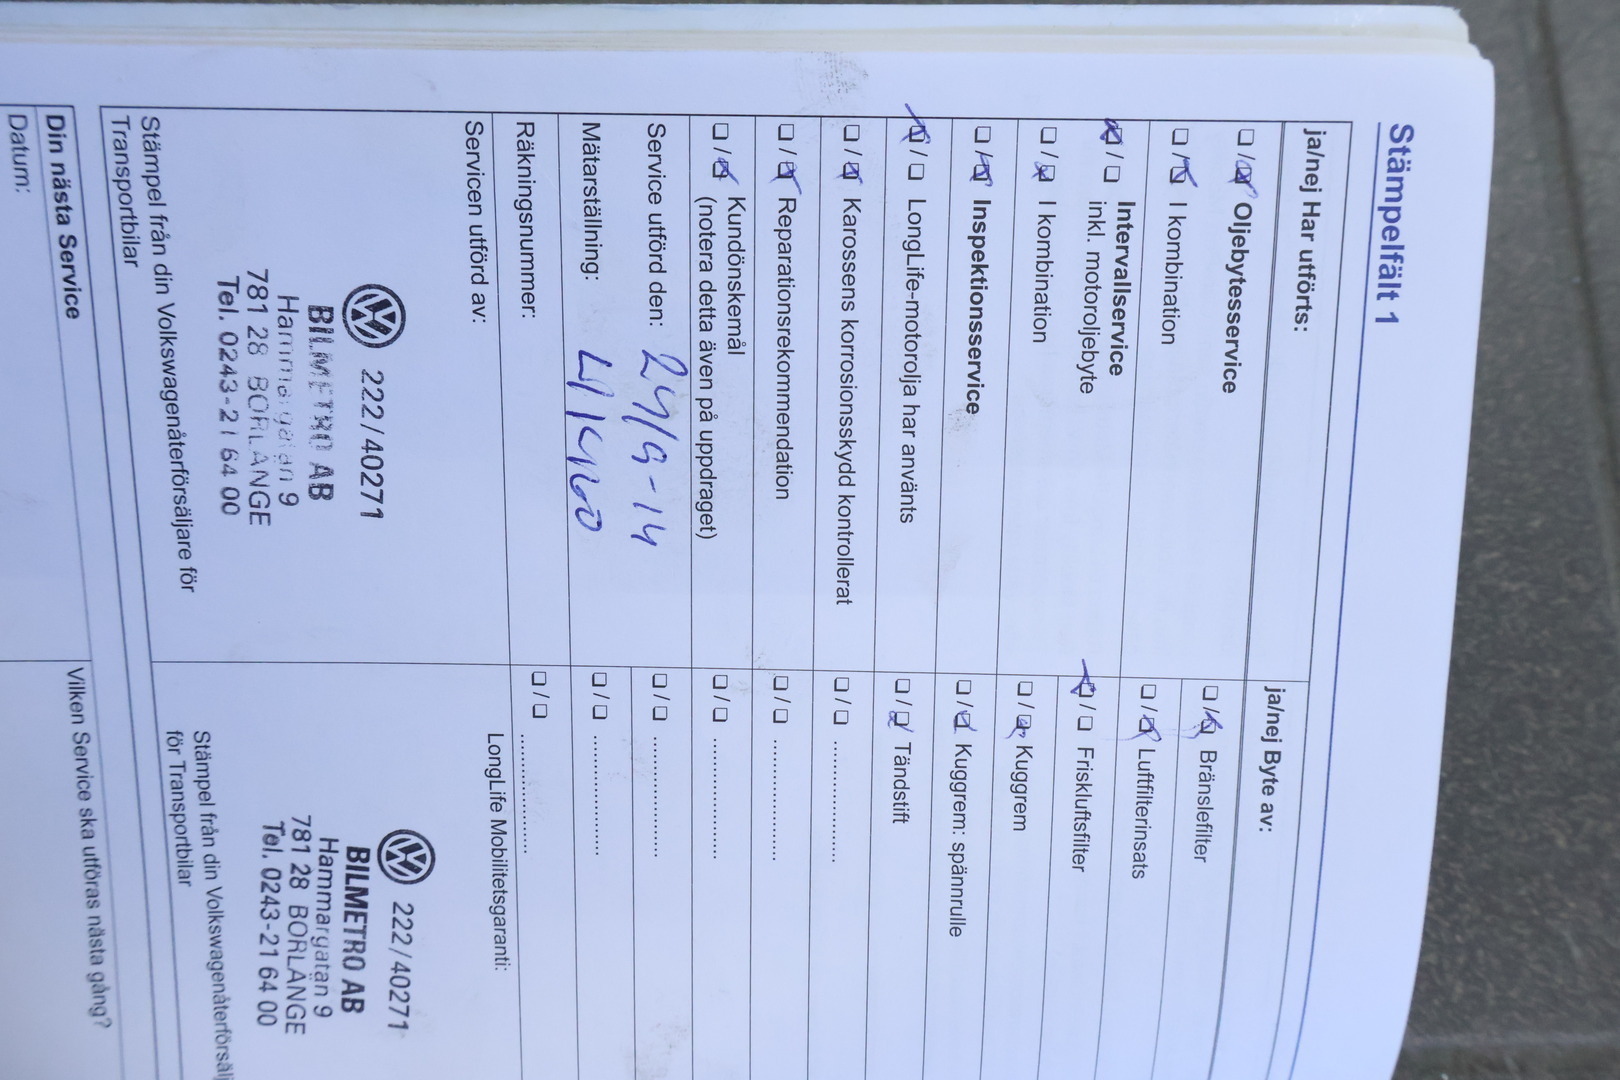 Stämpelfält 1
ja/nej Har utförts:
❑ / ☒ Oljebytesservice
❑ / ☒ I kombination
☒ / ❑ Intervallservice
inkl. motoroljebyte
❑ / ☒ I kombination
❑ / ☒ Inspektionsservice
☒ / ❑ LongLife-motorolja har använts
❑ / ☒ Karossens korrosionsskydd kontrollerat
❑ / ☒ Reparationsrekommendation
❑ / ☒ Kundönskemål
(notera detta även på uppdraget)
Service utförd den: 24/9-14
Mätarställning:
Räkningsnummer:
Servicen utförd av:
222/40271
BILMETRO AB
Hammargatan 9
781 28 BORLÄNGE
Tel. 0243-21 64 00
Stämpel från din Volkswagenåterförsäljare för
Transportbilar
ja/nej Byte av:
❑ / ☒ Bränslefilter
❑ / ☒ Luftfilterinsats
☒ / ❑ Friskluftsfilter
❑ / ☒ Kuggrem
❑ / ☒ Kuggrem: spännrulle
❑ / ☒ Tändstift
❑ / ❑ ....................
❑ / ❑ ....................
❑ / ❑ ....................
❑ / ❑ ....................
❑ / ❑ ....................
❑ / ❑ ....................
LongLife Mobilitetsgaranti:
222/40271
BILMETRO AB
Hammargatan 9
781 28 BORLÄNGE
Tel. 0243-21 64 00
Stämpel från din Volkswagenåterförsälj
för Transportbilar
Din nästa Service
Datum:
Vilken Service ska utföras nästa gång?